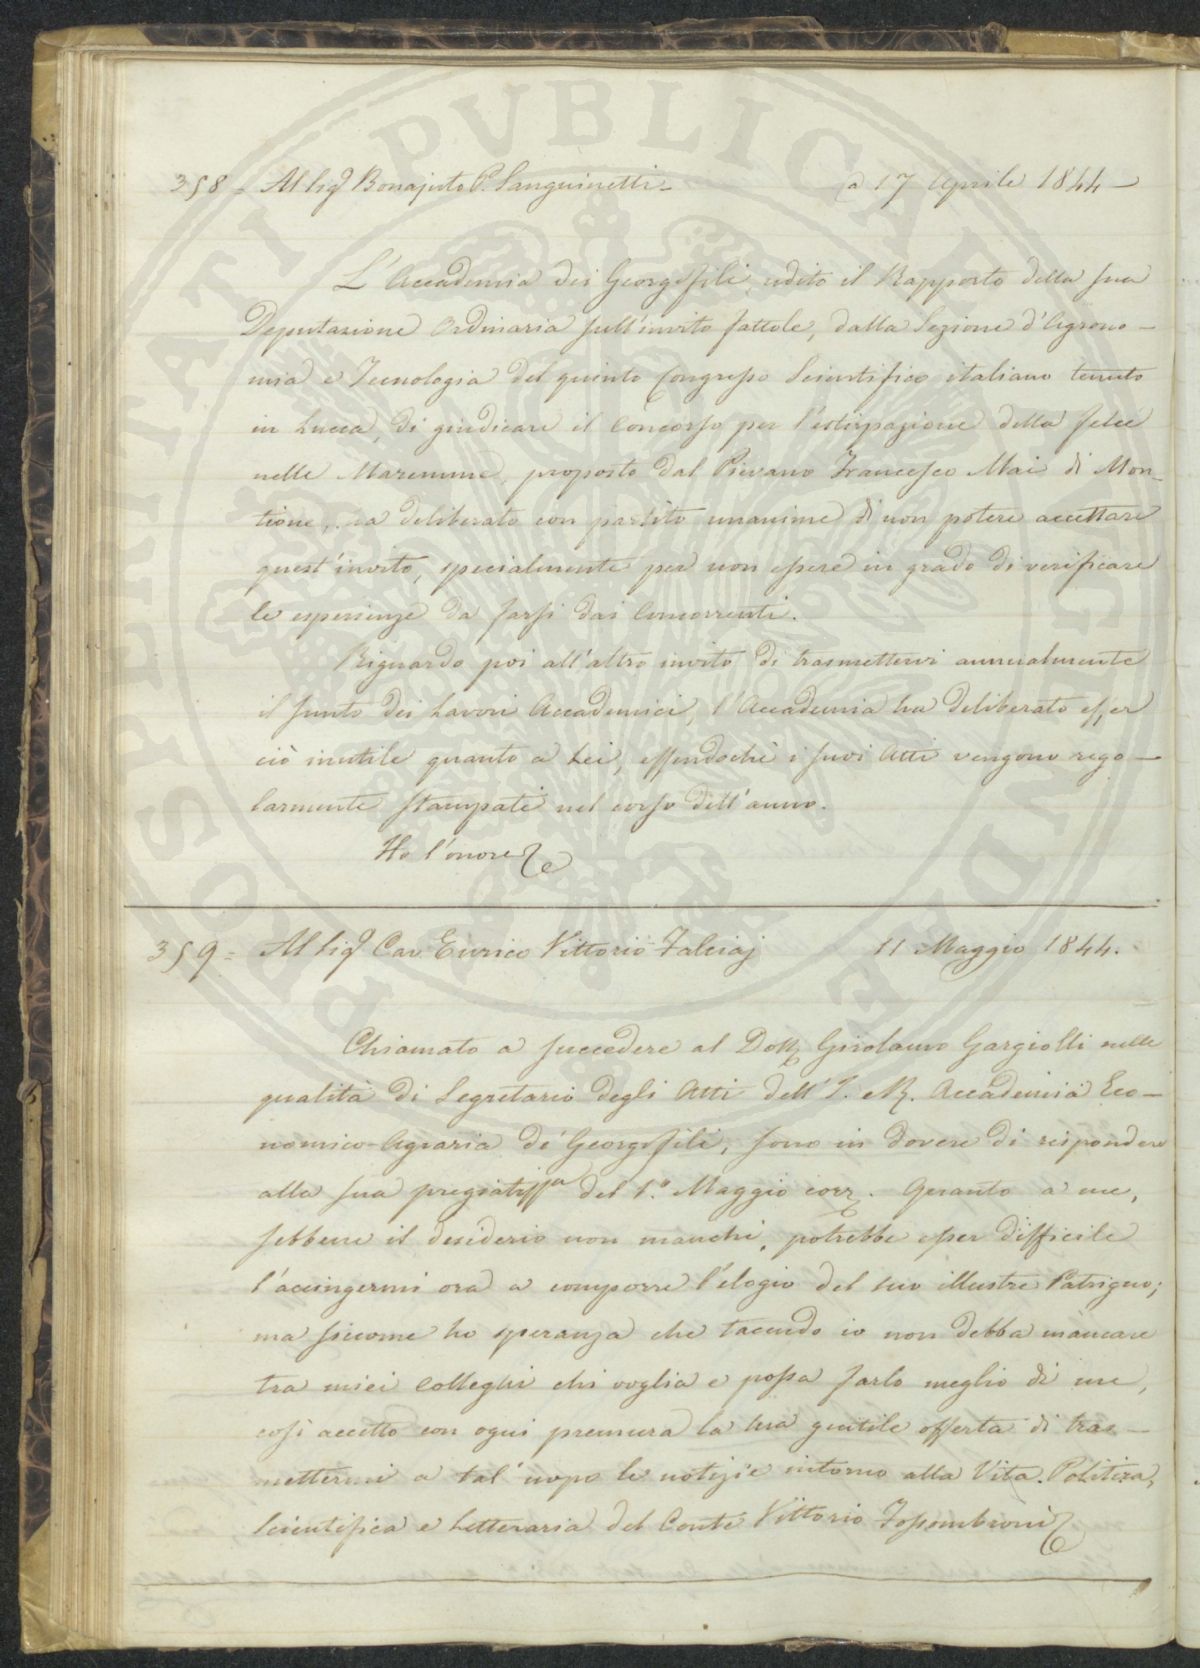 358 = Al Sig.r Bonajuto P. Sanguinetti = a 17 Aprile 1844 —
L'Accademia dei Georgofili, udito il Rapporto della sua
Deputazione Ordinaria sull'invito fattole, dalla Sezione d'Agrono-
mia e Tecnologia del quinto Congresso Scientifico italiano tenuto
in Lucca, di giudicare il Concorso per l'estirpazione della felce
nelle Maremme, proposto dal Pievano Francesco Mai di Mon-
tione, ha deliberato con partito unanime di non potere accettare
quest'invito, specialmente per non essere in grado di verificare
le esperienze da farsi dai Concorrenti.
Riguardo poi all'altro invito di trasmettervi annualmente
il sunto dei Lavori Accademici, l'Accademia ha deliberato esser
ciò inutile quanto a Lei, essendochè i suoi Atti vengono rego-
larmente stampati nel corso dell'anno.
Ho l'onore &c
359 = Al Sig.r Cav. Enrico Vittorio Falciaj 11 Maggio 1844.
Chiamato a succedere al Dott. Girolamo Gargiolli nelle
qualità di Segretario degli Atti dell'I. e R. Accademia Eco-
nomico-Agraria de' Georgofili, sono in dovere di rispondere
alla sua pregiatissa del 1.° Maggio corr. Quanto a me,
sebbene il desiderio non manchi, potrebbe esser difficile
l'accingermi ora a comporre l'elogio del suo illustre Patrigno;
ma siccome ho speranza che tacendo io non debba mancare
tra miei Colleghi chi voglia e possa farlo meglio di me,
così accetto con ogni premura la sua gentile offerta di tras-
mettermi a tal'uopo le notizie intorno alla Vita Politica,
Scientifica e Letteraria del Conte Vittorio Fossombroni &c
PROSPERITATI PVBLICAE AVGENDAE